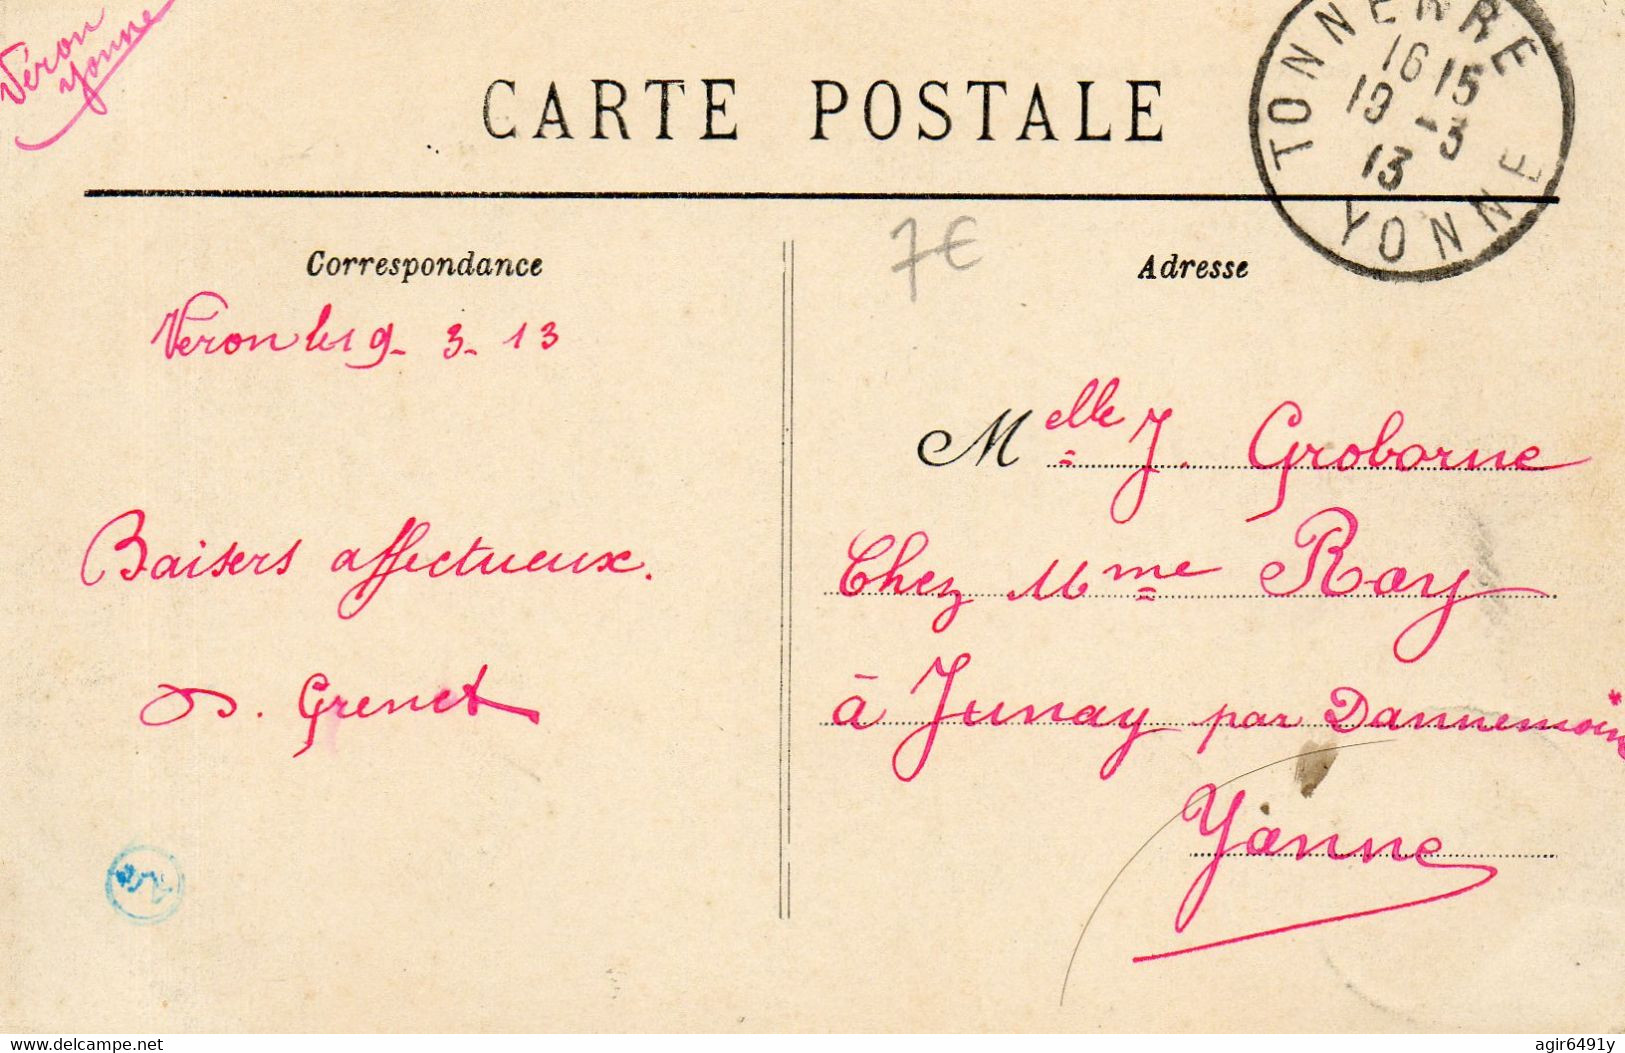 Véron
Yonne
CARTE POSTALE
TONNERRE
16 15
19 -3
13
YONNE
7€
Correspondance
Adresse
Véron le 19- 3- 13
Melle J. Groborne
Baisers affectueux.
Chez Mme Roy
D. Grenet
à Junay par Dannemoine
Yonne
www.delcampe.net
agir6491y